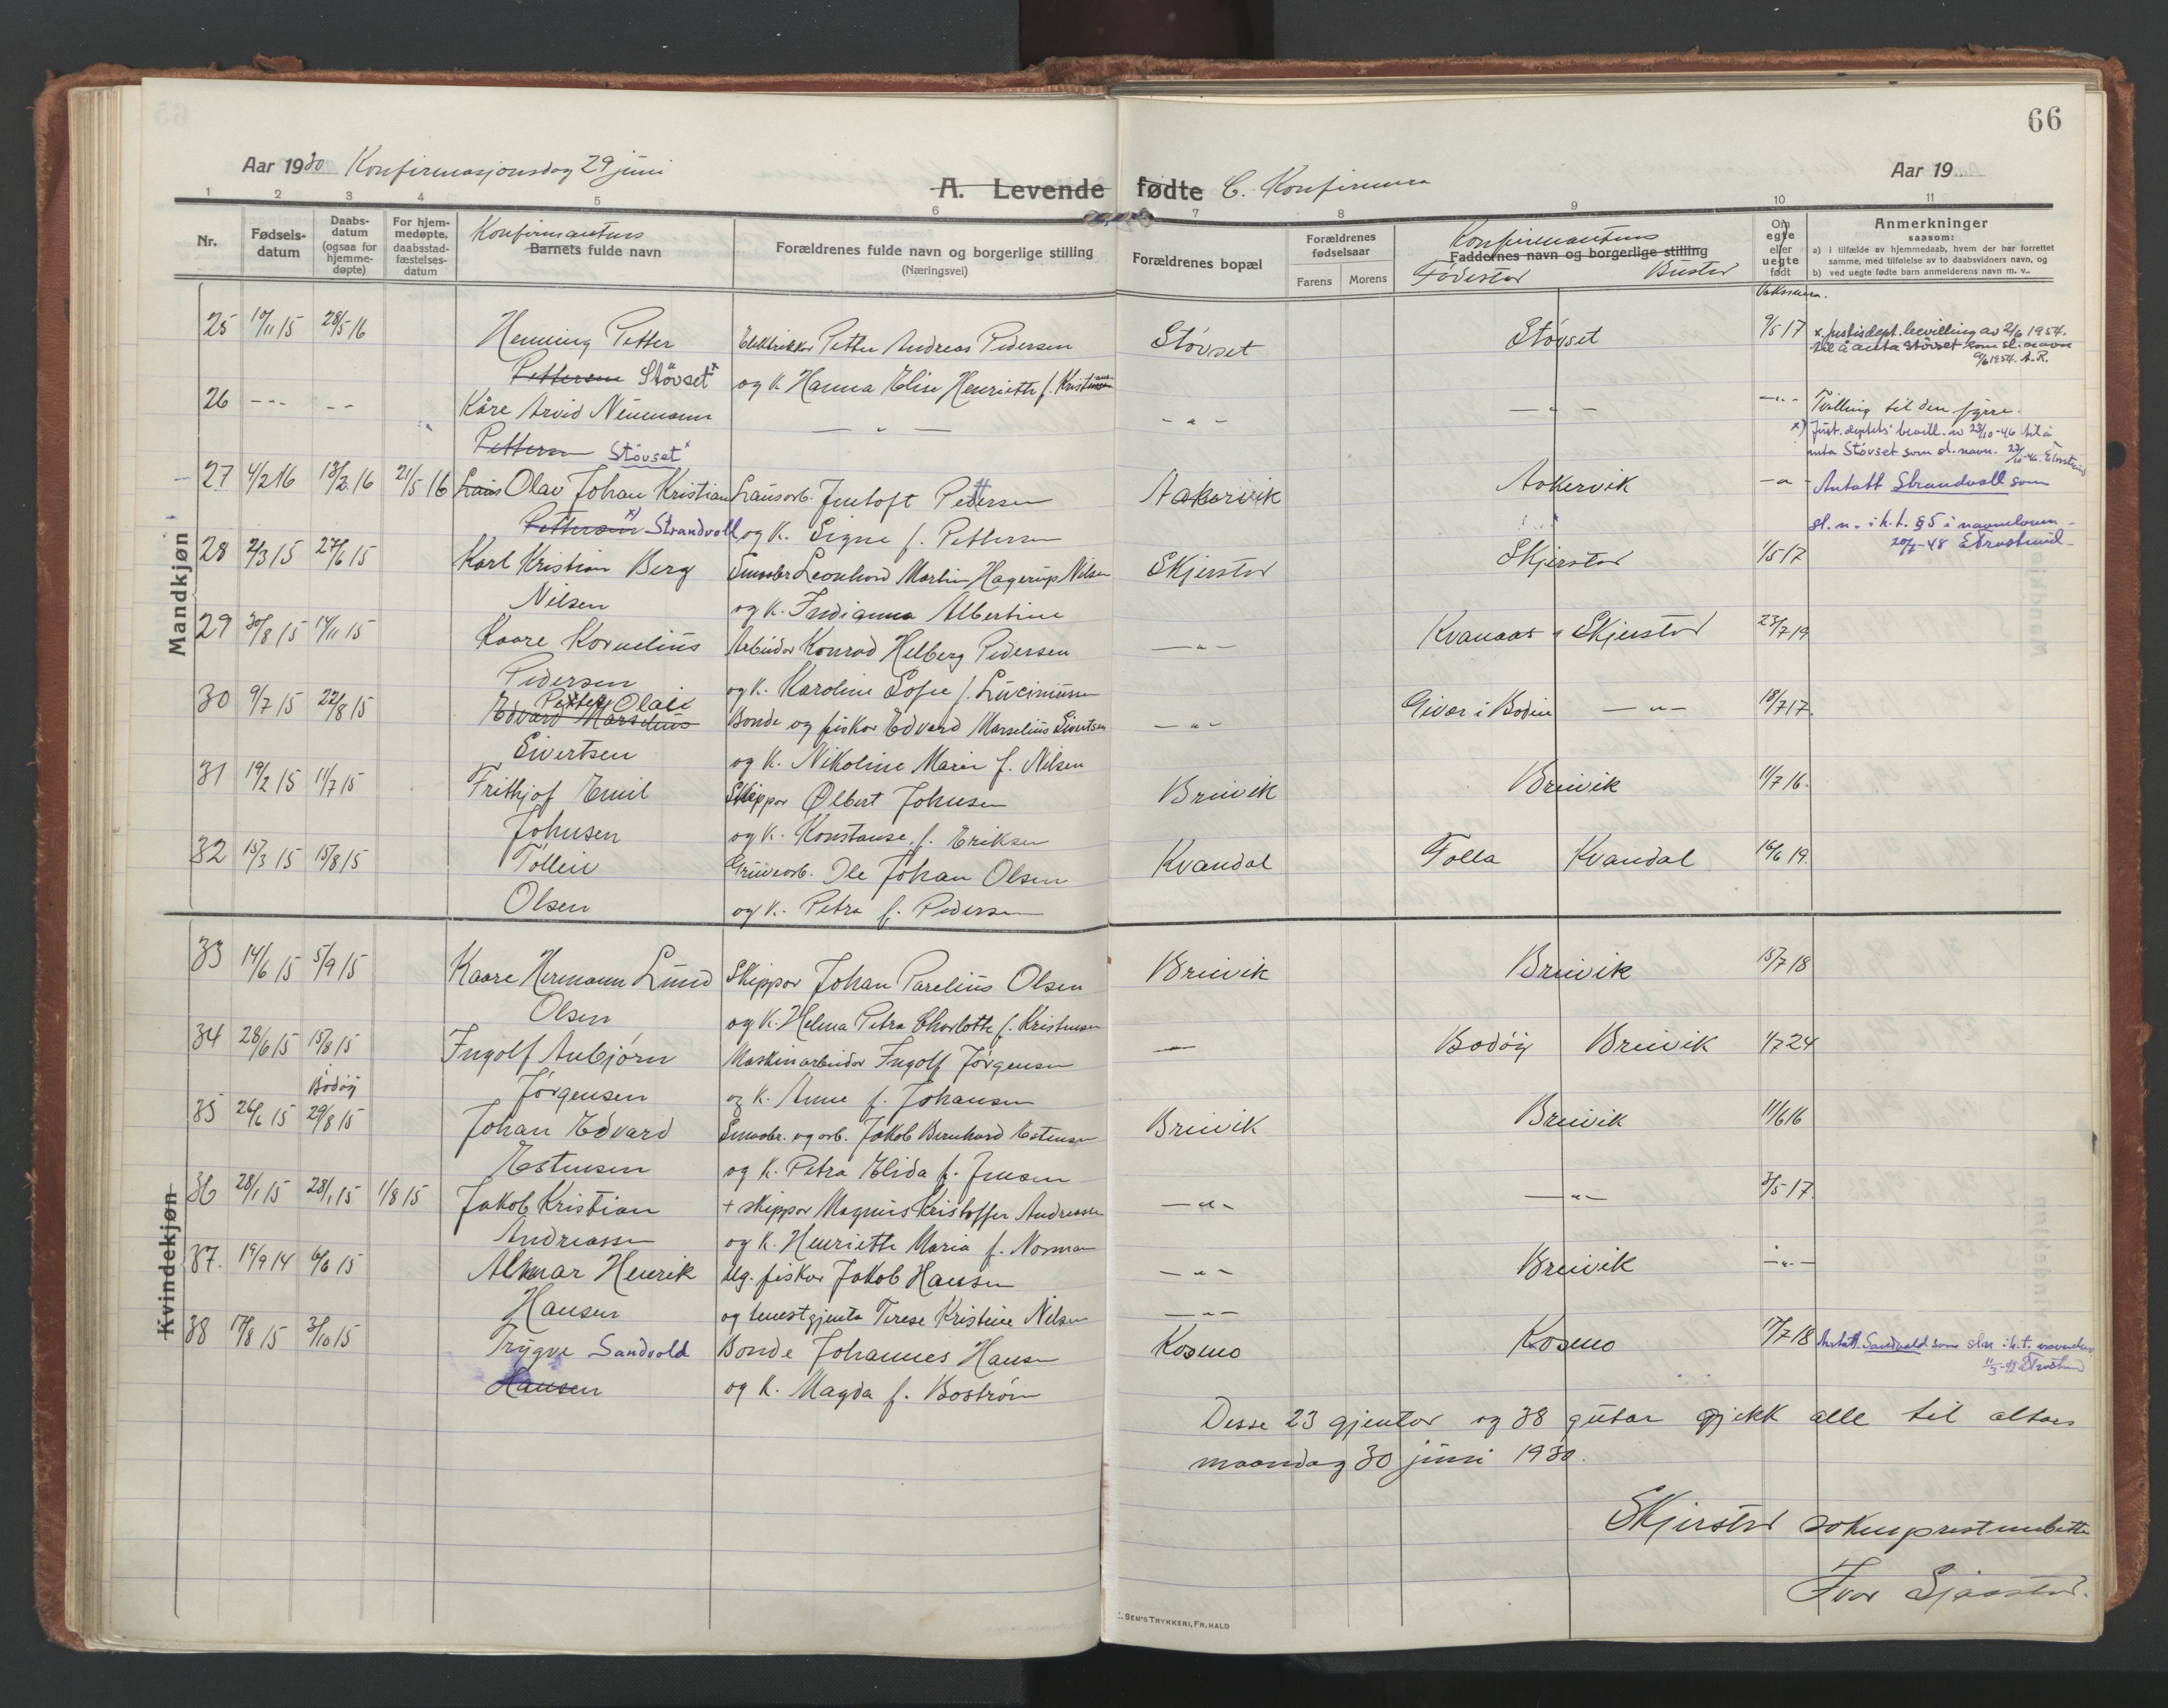 66
Aar 1930 Konfirmasjonsdag 29 juni
A. Levende fødte C. Konfirmera
Aar 19
1 2 3 4 5 6 7 8 9 10 11
Nr.
Fødsels-
datum
Daabs-
datum
(ogsaa for
hjemme-
døpte)
For hjem-
medøpte.
daabsstad-
fæstelses-
datum
Konfirmantens
Barnets fulde navn
Forældrenes fulde navn og borgerlige stilling
(Næringsvei)
Forældrenes bopæl
Forældrenes
fødselsaar
Farens Morens
Konfirmantens
Faddernes navn og borgerlige stilling
Fødestad Bustad
Om
egte
eller
uegte
født
Anmerkninger
saasom:
a) i tilfælde av hjemmedaab, hvem der har forrettet
samme, med tilføielse av to daabsvidners navn, og
b) ved uegte fødte barn anmelderens navn m. v..
Vaksinera.
Mandkjøn
25 10/11 15 28/5 16 Henning Petter Elektriker Petter Andreas Pedersen Støvset Støvset 9/5 17 x. Justisdept. bevilling av 2/6 1954.
til å anta Støvset som sl.navn
Pettersen Støvset x og k. Hanna Elise Henriette f. Kristiansen 9/6 1954. A.R.
26 --- -- Kåre Arvid Neumann — " — - " - — " — -"- Tvilling til den fyrre.
Pettersen Støvset x x) Just. deptets bevill. av 23/10-46 til å
anta Støvset som sl. navn.
27 4/2 16 13/2 16 21/5 16 Laus Olav Johan Kristian Lausarb. Jentoft Pettersen Aakervik Aakervik -"- Antatt Strandvoll som
Pettersen x) Strandvoll og k. Signe f. Pettersen sl. n. i h. t. § 5 i navneloven
20/7-48 ETrostrud
28 2/3 15 27/6 15 Karl Kristian Berg Smaabr Leonhard Martin Hagerup Nilsen Skjerstad Skjerstad 1/5 17
Nilsen og k. Indianna Albertine
29 30/8 15 14/11 15 Kaare Kornelius Arbeidar Konrad Helberg Pedersen — " — Kvanaas i Skjerstad 23/7 19
Pedersen og k. Karoline Sofie f. Lucimussen
30 9/7 15 22/8 15 Petter Olai
Edvard Marselius Bonde og fiskar Edvard Marselius Sivertsen — " — Givær i Bodin — " — 18/7 17.
Sivertsen og k. Nikoline Marie f. Nilsen
31 19/2 15 11/7 15 Frithjof Emil Skippar Olbert Johnsen Breivik Breivik 11/7 16.
Johnsen og k. Konstanse f. Eriksen
32 15/3 15 15/8 15 Tollein Gruvearb. Ole Johan Olsen Kvandal Folla Kvandal 16/6 19.
Olsen og k. Petra f. Pedersen
Kvindekjøn
33 14/6 15 5/9 15 Kaare Hermann Lund Skippar Johan Parelius Olsen Breivik Breivik 15/7 18
Olsen og k. Helma Petra Charlotte f. Kristensen
34 28/6 15 15/8 15 Ingolf Anbjørn Maskinarbeidar Ingolf Jørgensen — Bodøy Breivik 1/7 24
i Bodøy Jørgensen og k. Anne f. Johansen
35 26/6 15 29/8 15 Johan Edvard Smaabr. og arb. Jakob Bernhard Estensen Breivik Breivik 11/6 16
Estensen og k. Petra Elida f. Jensen
36 28/1 15 28/1 15 1/8 15 Jakob Kristian + skippar Magnus Kristoffer Andreassen — " — — " — 3/5 17.
Andreassen og k. Henriette Maria f. Norman
37. 19/9 14 6/6 15 Almar Henrik Ug. fiskar Jakob Hansen — " — Breivik -"-
Hansen og tenestgjenta Terese Kristine Nilsen — " —
38 17/8 15 3/10 15 Trygve Sandvold Bonde Johannes Hansen Kosmo Kosmo 17/7 18 Antatt Sandvold som sln i h. t. navneloven
Hansen og k. Magda f. Boström 11/3-48 ETrostrud
Desse 23 gjentor og 38 gutar gjekk alle til altars
maandag 30 juni 1930.
Skjerstad sokneprestembætte
Ivar Sjaastad.
E. SEM'S TRYKKERI, FR.HALD